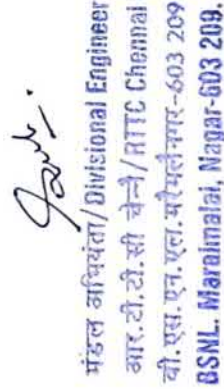 मंडल अभियंता/Divisional Engineer
आर.टी.टी.सी चेन्नै/RTTC Chennai
बी.एस.एन.एल.मरैमलैनगर-603 209
BSNL. Maraimalai Nagar-603 209.